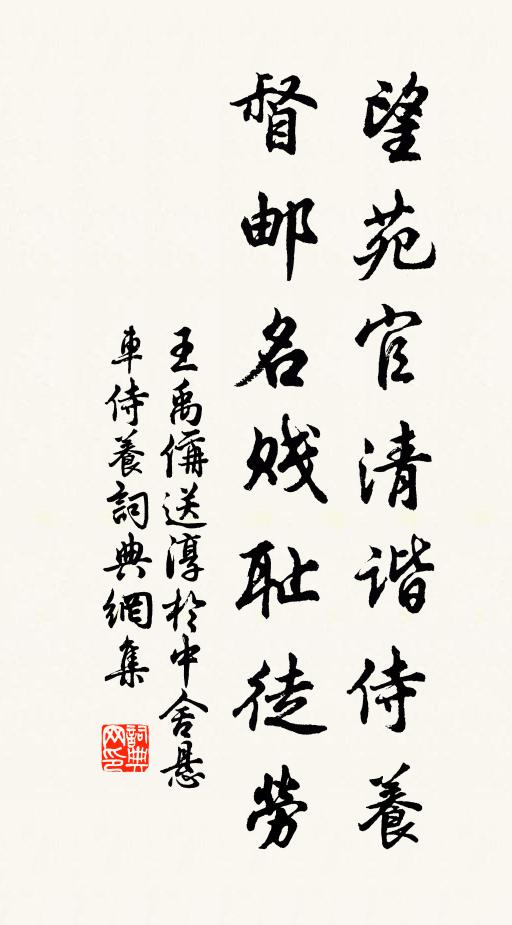 望苑官清谐侍養
督邮名贱耻徒勞
王禹偁送淳於中舍悬
車侍養詞典網集
詞典
网印